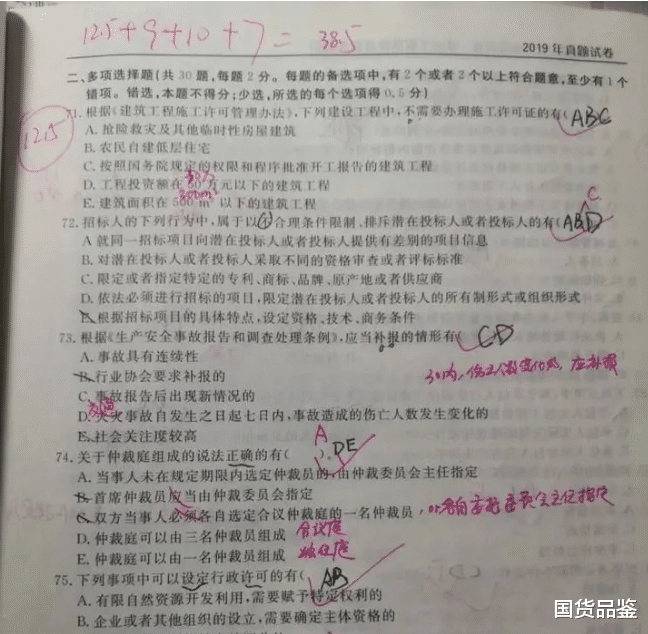 12.5+9+10+7=38.5
2019年真题试卷
二、多项选择题(共30题,每题2分。每题的备选项中,有2个或者2个以上符合题意,至少有1个
错项。错选,本题不得分;少选,所选的每个选项得0.5分)
12.5
71.根据《建筑工程施工许可管理办法》,下列建设工程中,不需要办理施工许可证的有(ABC
A.抢险救灾及其他临时性房屋建筑
B.农民自建低层住宅
C.按照国务院规定的权限和程序批准开工报告的建筑工程
D.工程投资额在50万元以下的建筑工程
E.建筑面积在500m²以下的建筑工程
C
72.招标人的下列行为中,属于以不合理条件限制、排斥潜在投标人或者投标人的有(ABD
A就同一招标项目向潜在投标人或者投标人提供有差别的项目信息
B.对潜在投标人或者投标人采取不同的资格审查或者评标标准
C.限定或者指定特定的专利、商标、品牌、原产地或者供应商
D.依法必须进行招标的项目,限定潜在投标人或者投标人的所有制形式或组织形式
E.根据招标项目的具体特点,设定资格、技术、商务条件
73.根据《生产安全事故报告和调查处理条例》,应当补报的情形有 CD
A.事故具有连续性
30内,伤亡人数变化的,应补报
B.行业协会要求补报的
C.事故报告后出现新情况的
D.火灾事故自发生之日起七日内,事故造成的伤亡人数发生变化的
E.社会关注度较高
A
74.关于仲裁庭组成的说法正确的有( )。DE
A.当事人未在规定期限内选定仲裁员的,由仲裁委员会主任指定
B.首席仲裁员应当由仲裁委员会指定
C.双方当事人必须各自选定合议仲裁庭的一名仲裁员,
D.仲裁庭可以由三名仲裁员组成 合议庭
E.仲裁庭可以由一名仲裁员组成 独任庭
75.下列事项中可以设定行政许可的有(AB
A.有限自然资源开发利用,需要赋予特定权利的
B.企业或者其他组织的设立,需要确定主体资格的
国货品鉴